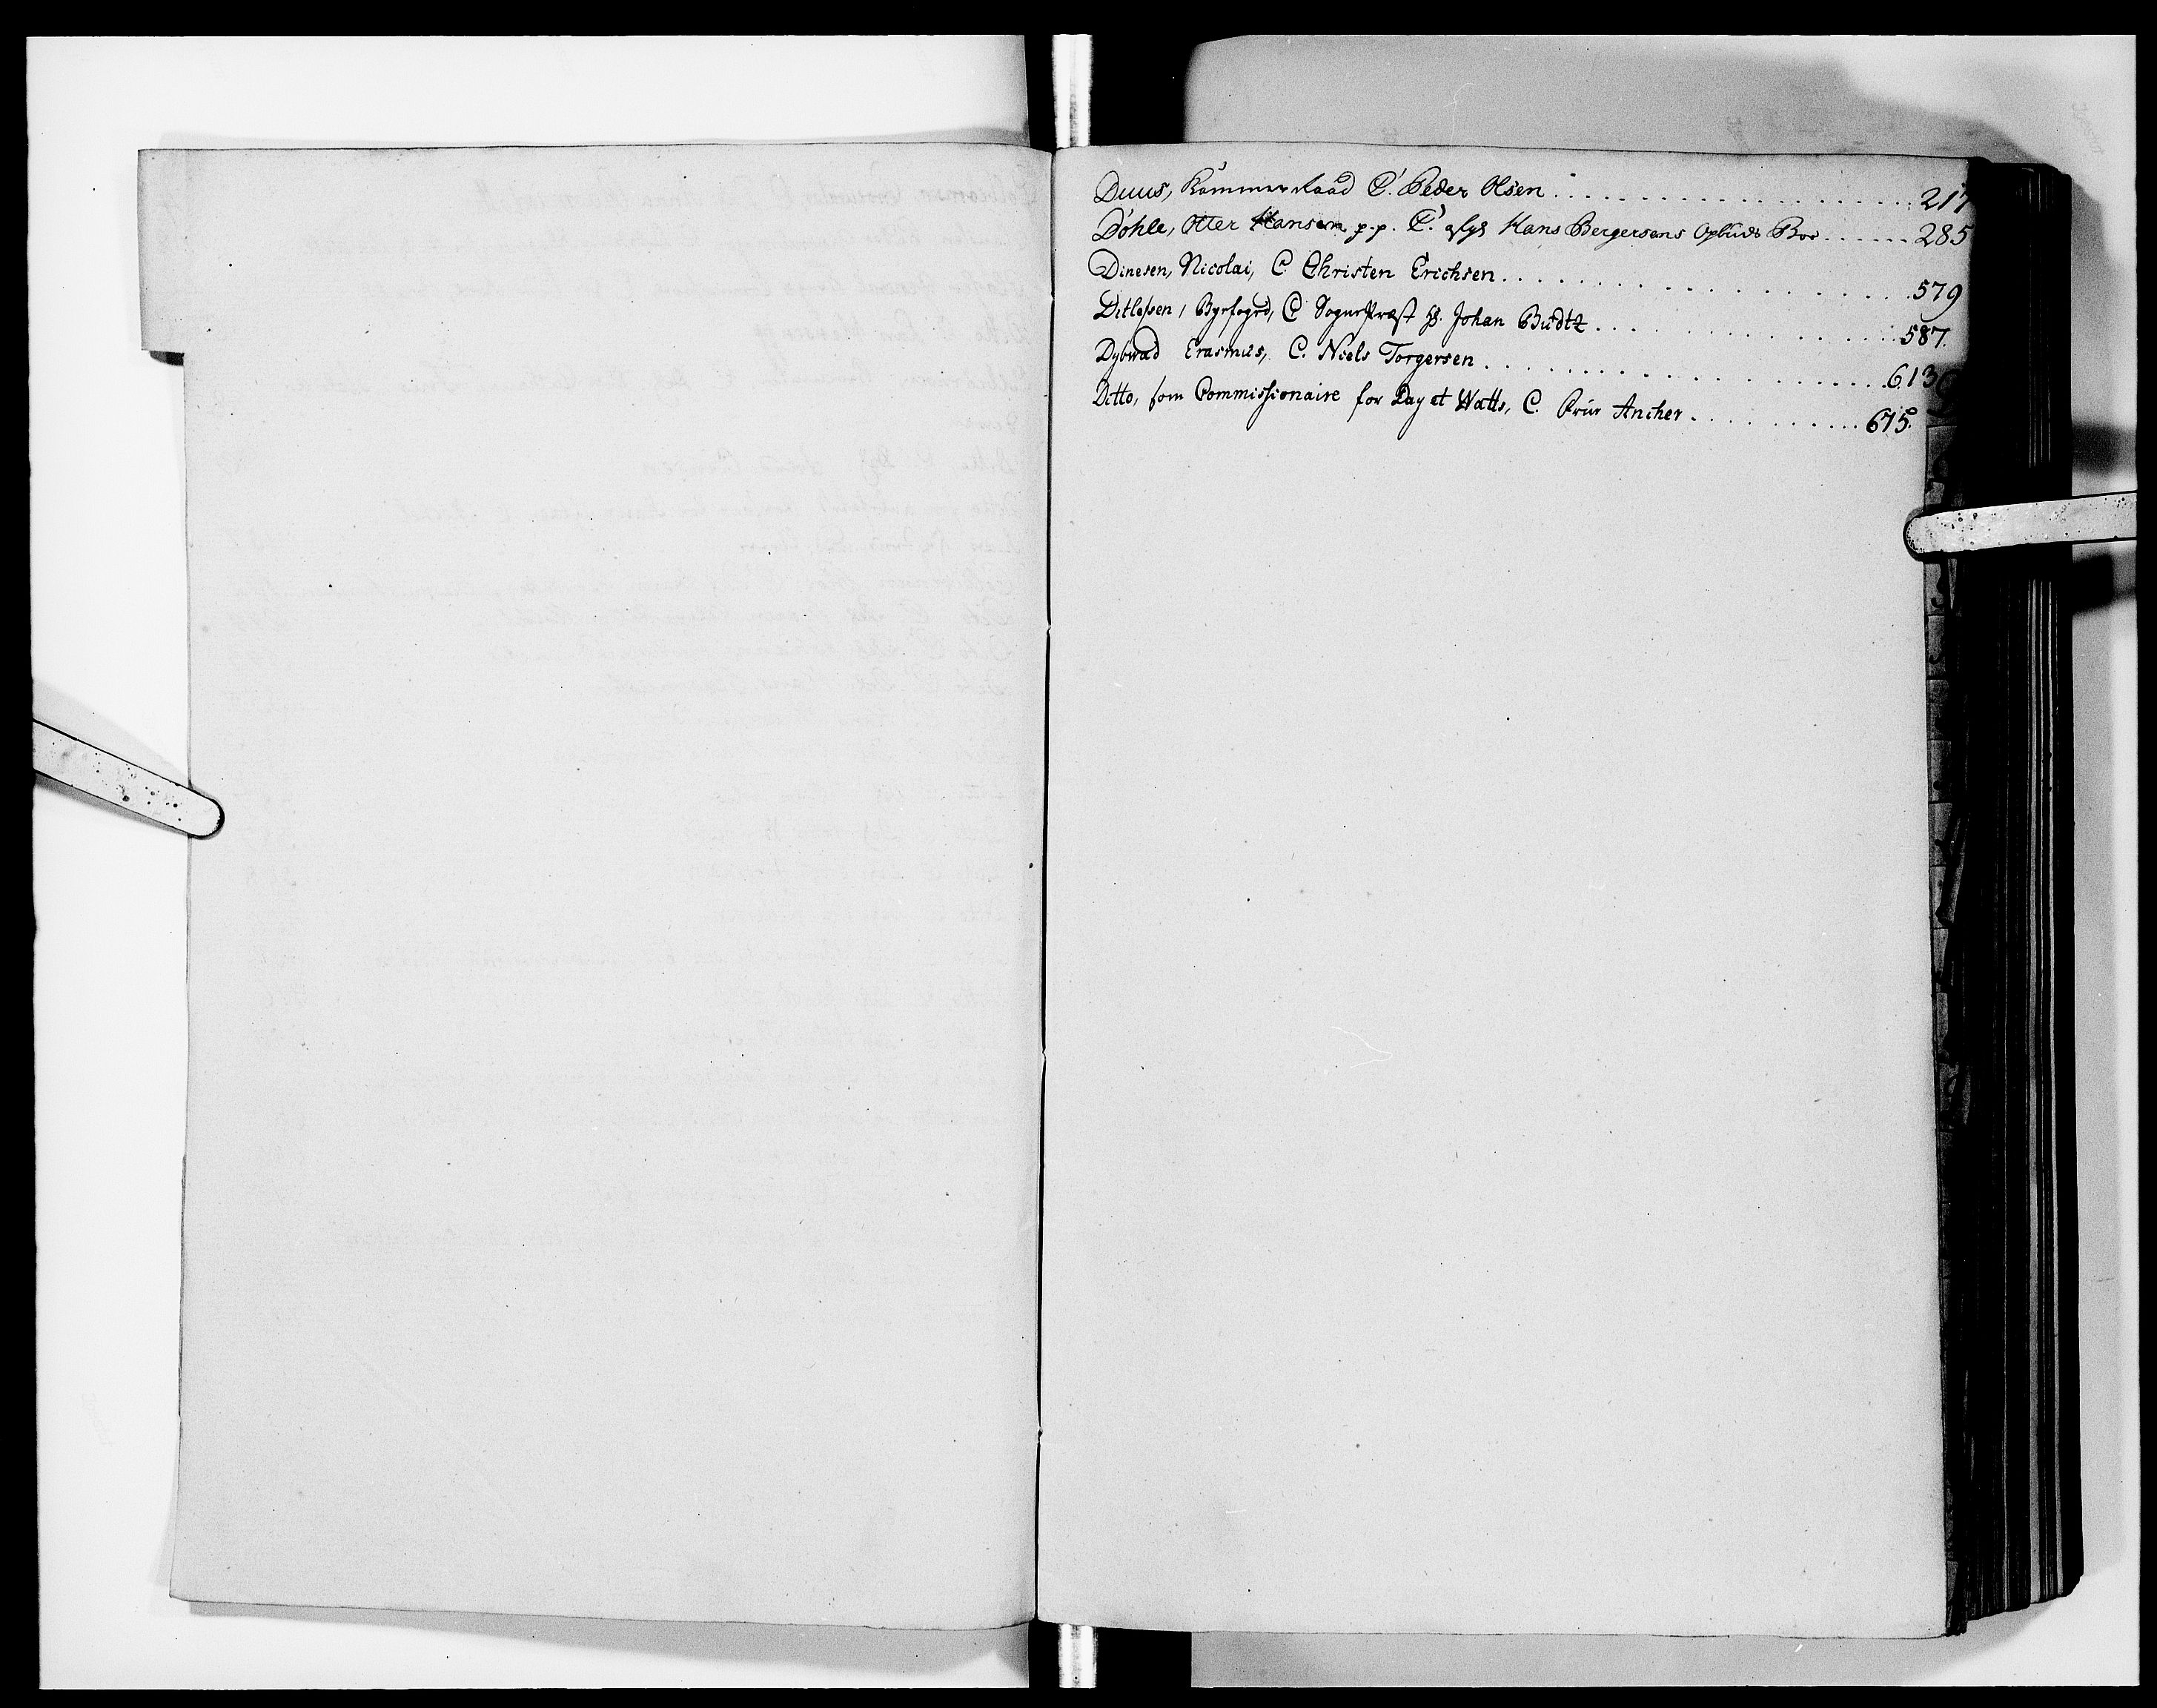 Duus, Kammerraad C. Peder Olsen . . . . . . . . . . . . . . . . . . . . 217
Döhle, Otter Hansen p.p. C. afg: Hans Bergersens Opbuds Boe . . . . . . . 285
Dinesen, Nicolai, C. Christen Erichsen . . . . . . . . . . . . . . . . . . 579
Ditlefsen, Byefoged, C. SognePræst Hr. Johan Budtz . . . . . . . . . . . . 587.
Dybwad Erasmus, C. Niels Torgersen . . . . . . . . . . . . . . . . . . 613
Ditto, som Commissionaire for Day et Watts, C. Ancher . . . . . . . . . . . 675.